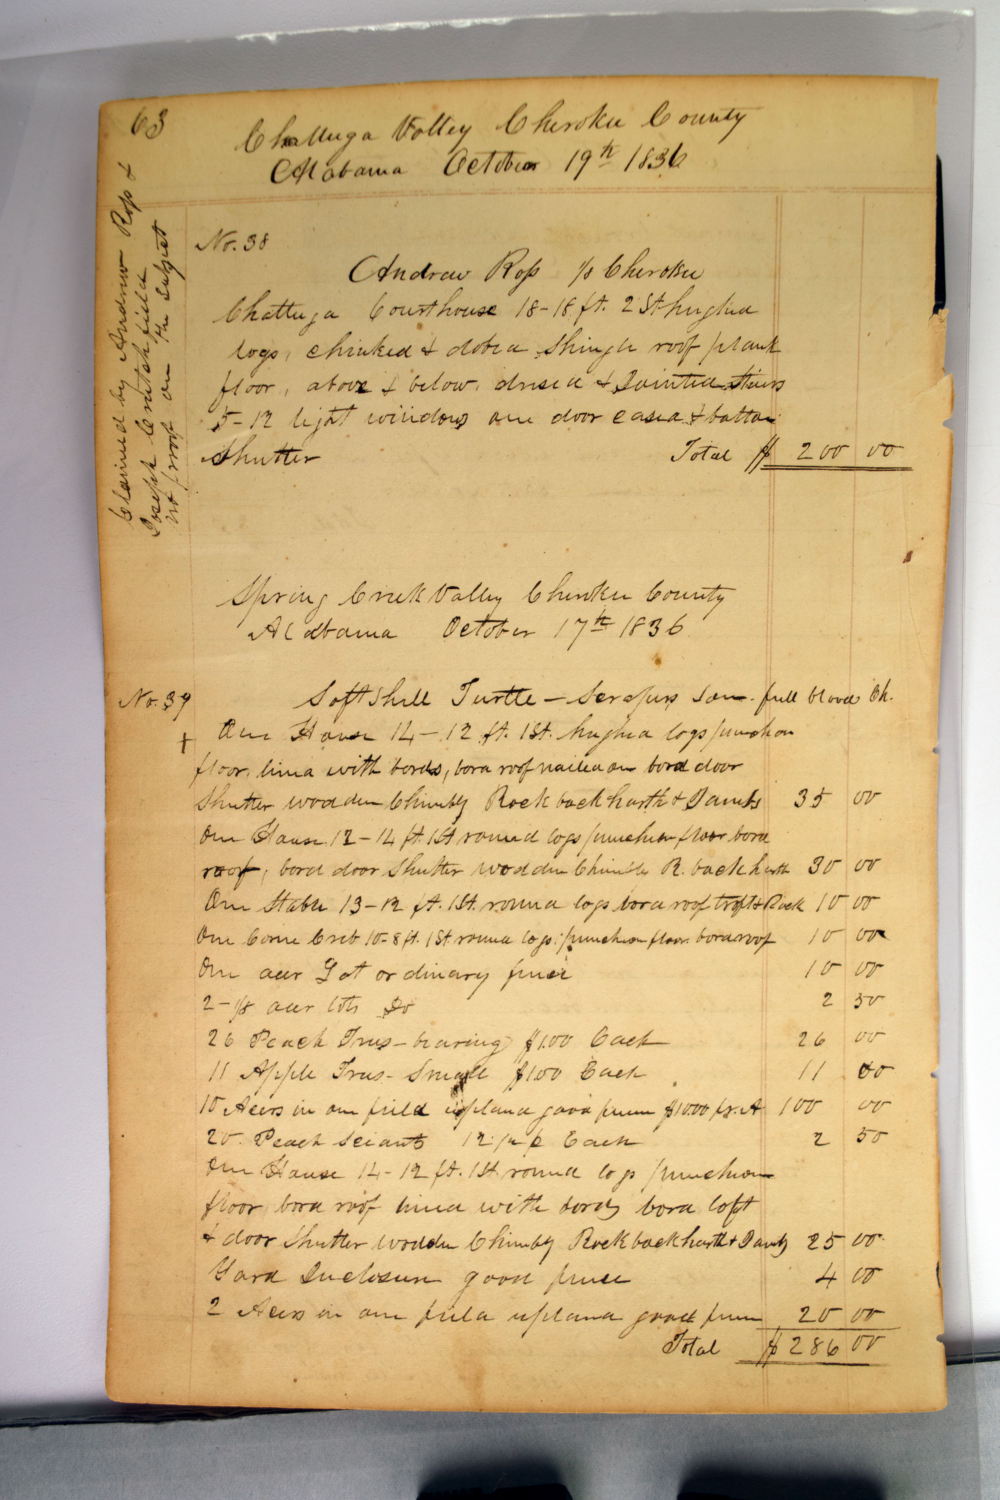 63
Chattuga Valley Cherokee County
Alabama October 19th 1836
Claimed by Andrew Ross &
Joseph Crutchfield
no proof on the Subject
No. 38
Andrew Ross 1/8 Cherokee
Chattuga Courthouse 18-18 ft. 2 St hughed
logs, chinked & dobed Shingle roof plank
floor, above & below. dresed & Jointed Stairs
5-12 light windows one door cased & batton
Shutter Total $ 200 00
Spring Creek Valley Cherokee County
Alabama October 17th 1836
No. 39 Soft Shell Turtle - Scrapers Son - full blood Ch.
+ One House 14-12 ft. 1 St. hughed logs punchon
floor, lined with bords, bord roof nailed on bord door
Shutter wooden Chimbly Rock back harth & Jambs 35 00
One House 12-14 ft. 1 St round logs punchion floor bord
roof, bord door Shutter wooden Chimbly R. back harth 30 00
One Stable 13-12 ft. 1 St. round logs bord roof troft & Rack 10 00
One Corne Crib 10-8 ft. 1 St round logs punchion floor bord roof 10 00
One acer Lot ordinary fence 10 00
2 - 1/8 acer lots Do 2 50
26 Peach Trees - bearing $1.00 Each 26 00
11 Apple Trees - Small $1.00 Each 11 00
10 Acers in one field upland good fence $10.00 pr. A 100 00
20 Peach Sciants 12 1/2 ¢ Each 2 50
One House 14-12 ft. 1 St. round logs punchion
floor bord roof lined with bords bord loft
& door Shutter wooden Chimbly Rock back harth & Jambs 25 00
Yard Inclosure good fence 4 00
2 Acers in one field upland good fence 20 00
Total $ 286 00